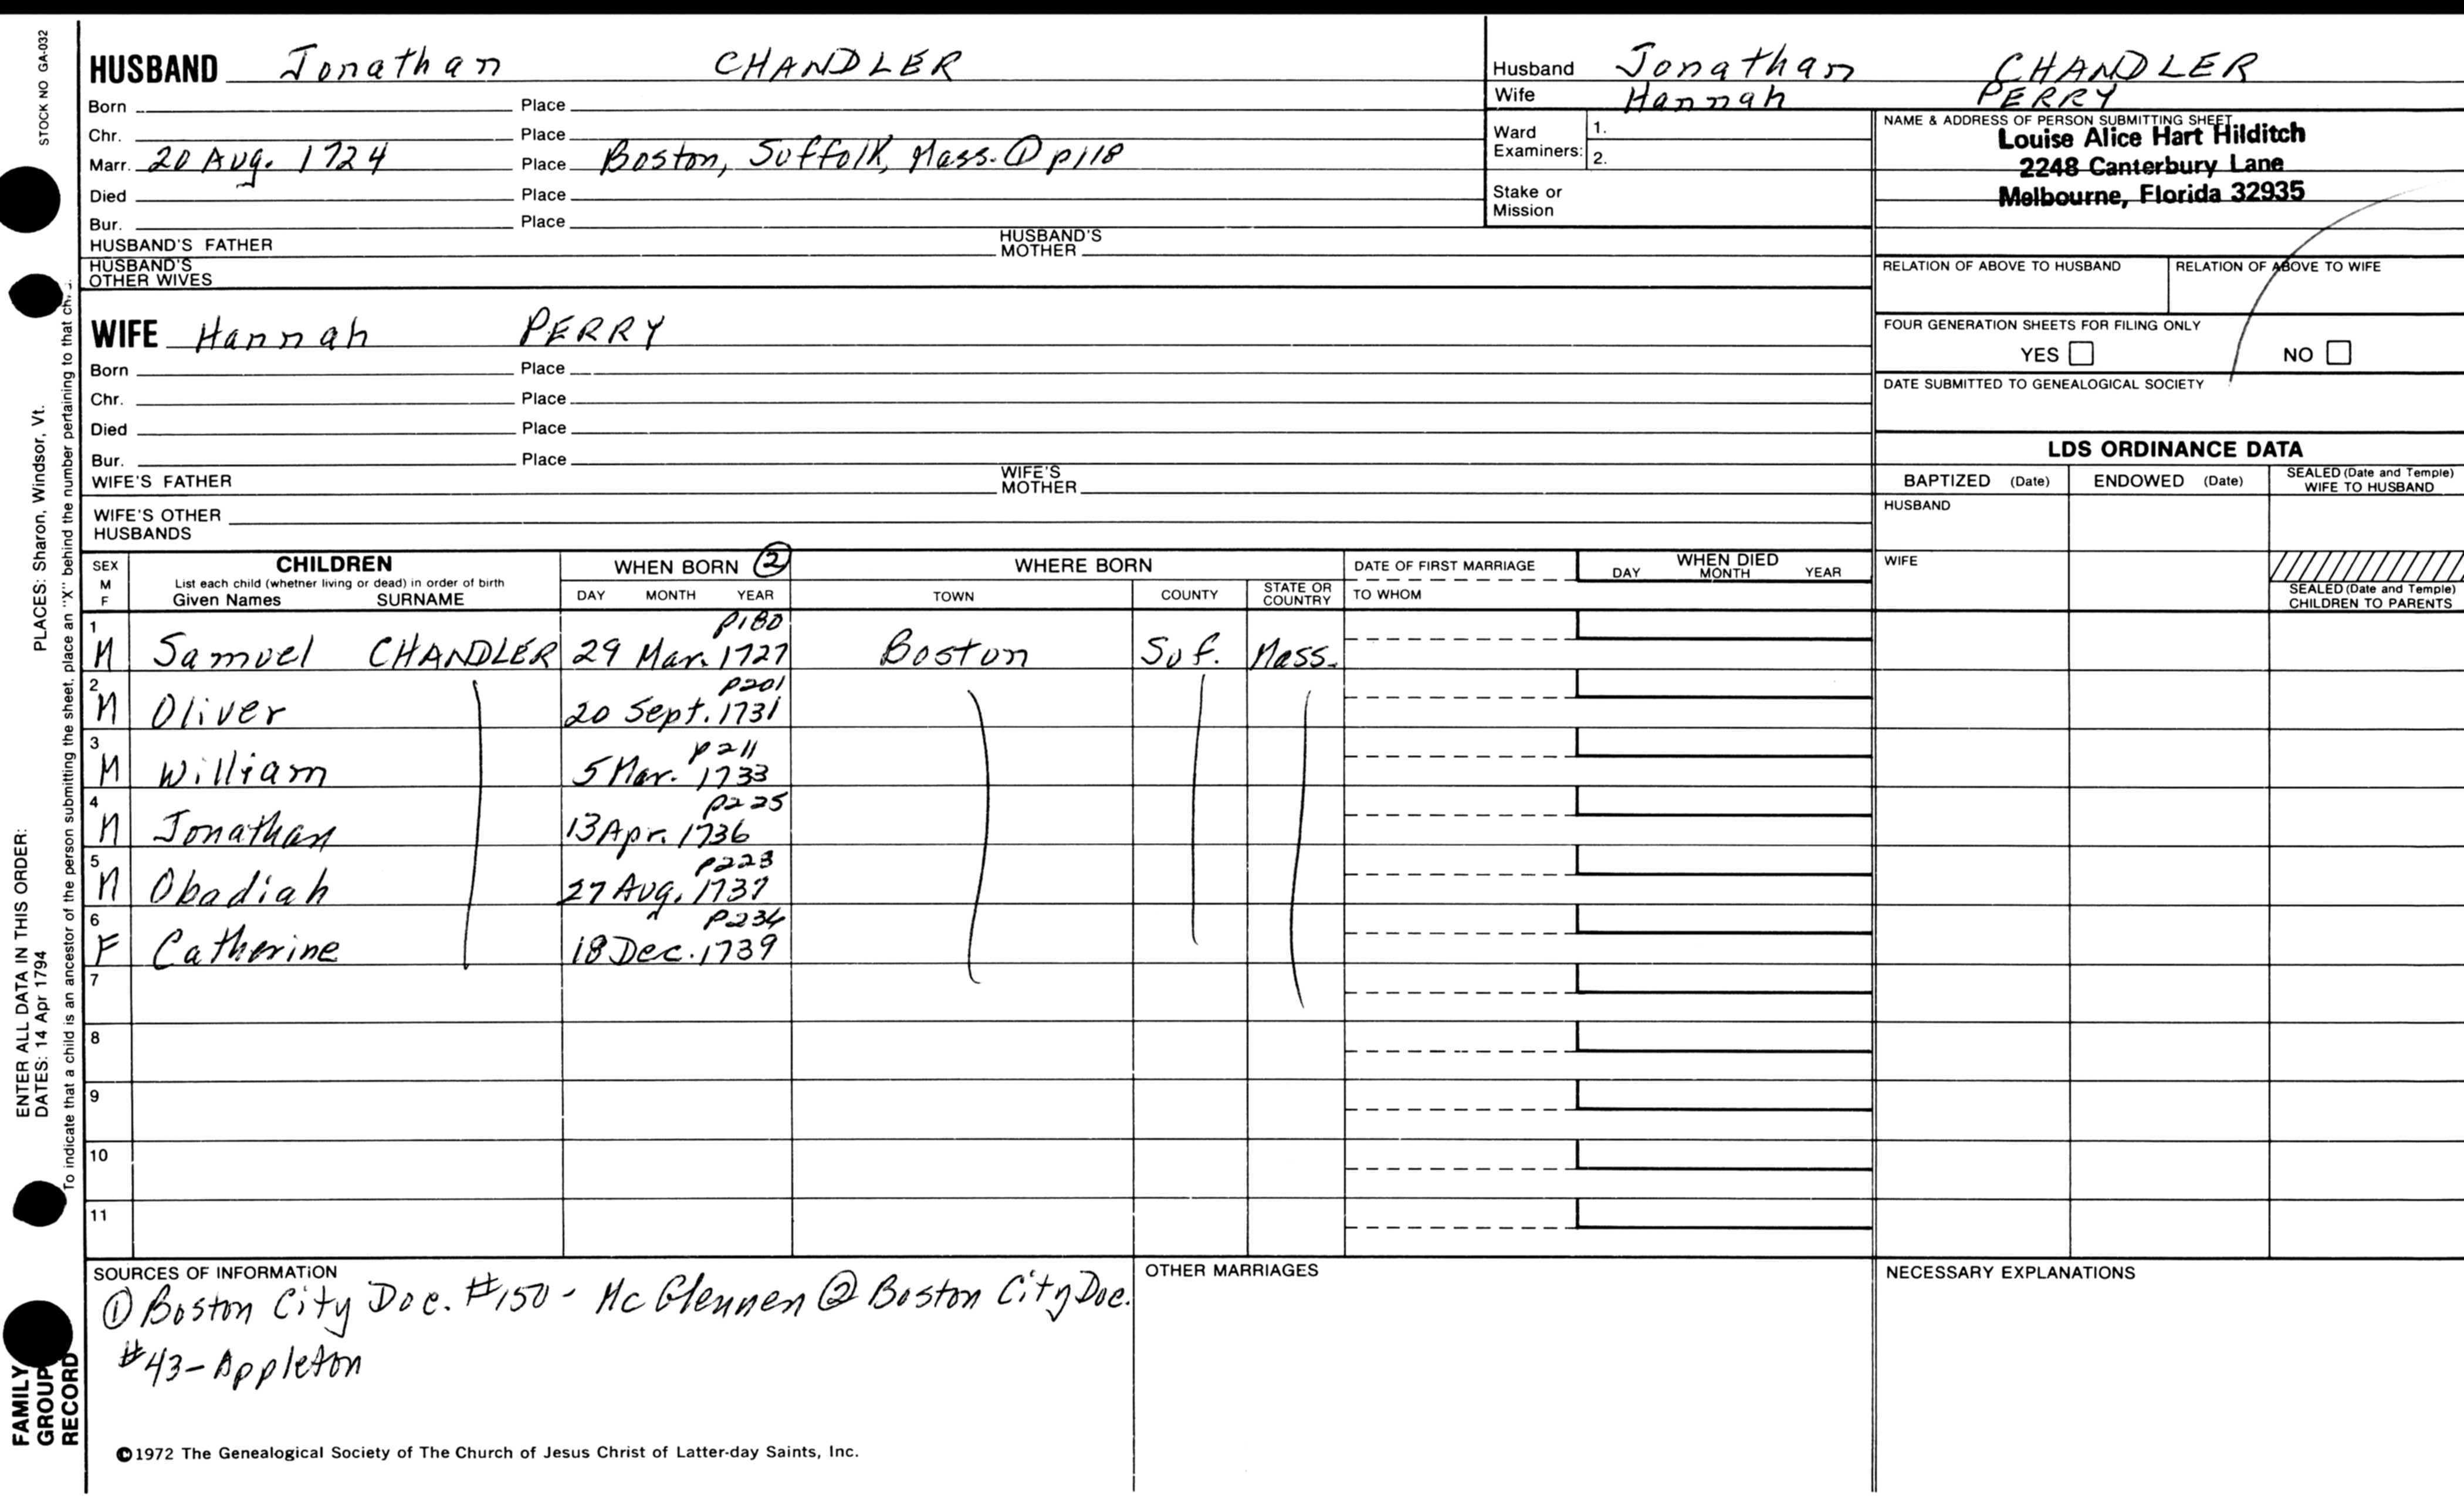 STOCK NO GA-032
PLACES: Sharon, Windsor, Vt.
ENTER ALL DATA IN THIS ORDER:
DATES: 14 Apr 1794
To indicate that a child is an ancestor of the person submitting the sheet, place an "X" behind the number pertaining to that
FAMILY GROUP RECORD
HUSBAND Jonathan CHANDLER
Born Place
Chr. Place
Marr. 20 Aug. 1724 Place Boston, Suffolk, Mass. ① p118
Died Place
Bur. Place
HUSBAND'S FATHER HUSBAND'S MOTHER
HUSBAND'S OTHER WIVES
WIFE Hannah PERRY
Born Place
Chr. Place
Died Place
Bur. Place
WIFE'S FATHER WIFE'S MOTHER
WIFE'S OTHER HUSBANDS
Husband Jonathan CHANDLER
Wife Hannah PERRY
Ward Examiners: 1.
2.
Stake or Mission
NAME & ADDRESS OF PERSON SUBMITTING SHEET
Louise Alice Hart Hilditch
2248 Canterbury Lane
Melbourne, Florida 32935
RELATION OF ABOVE TO HUSBAND RELATION OF ABOVE TO WIFE
FOUR GENERATION SHEETS FOR FILING ONLY
YES NO
DATE SUBMITTED TO GENEALOGICAL SOCIETY
LDS ORDINANCE DATA
BAPTIZED (Date) ENDOWED (Date) SEALED (Date and Temple) WIFE TO HUSBAND
HUSBAND
WIFE
SEALED (Date and Temple) CHILDREN TO PARENTS
SEX M F CHILDREN WHEN BORN ② WHERE BORN DATE OF FIRST MARRIAGE WHEN DIED
List each child (whether living or dead) in order of birth
Given Names SURNAME DAY MONTH YEAR TOWN COUNTY STATE OR COUNTRY TO WHOM DAY MONTH YEAR
1 p180
M Samuel CHANDLER 29 Mar. 1727 Boston Suf. Mass.
2 p201
M Oliver 20 Sept. 1731
3 p211
M William 5 Mar. 1733
4 p225
M Jonathan 13 Apr. 1736
5 p228
M Obadiah 27 Aug. 1737
6 p234
F Catherine 18 Dec. 1739
7
8
9
10
11
SOURCES OF INFORMATION
① Boston City Doc. #150 - McGlennen ② Boston City Doc.
#43-Appleton
OTHER MARRIAGES
NECESSARY EXPLANATIONS
©1972 The Genealogical Society of The Church of Jesus Christ of Latter-day Saints, Inc.